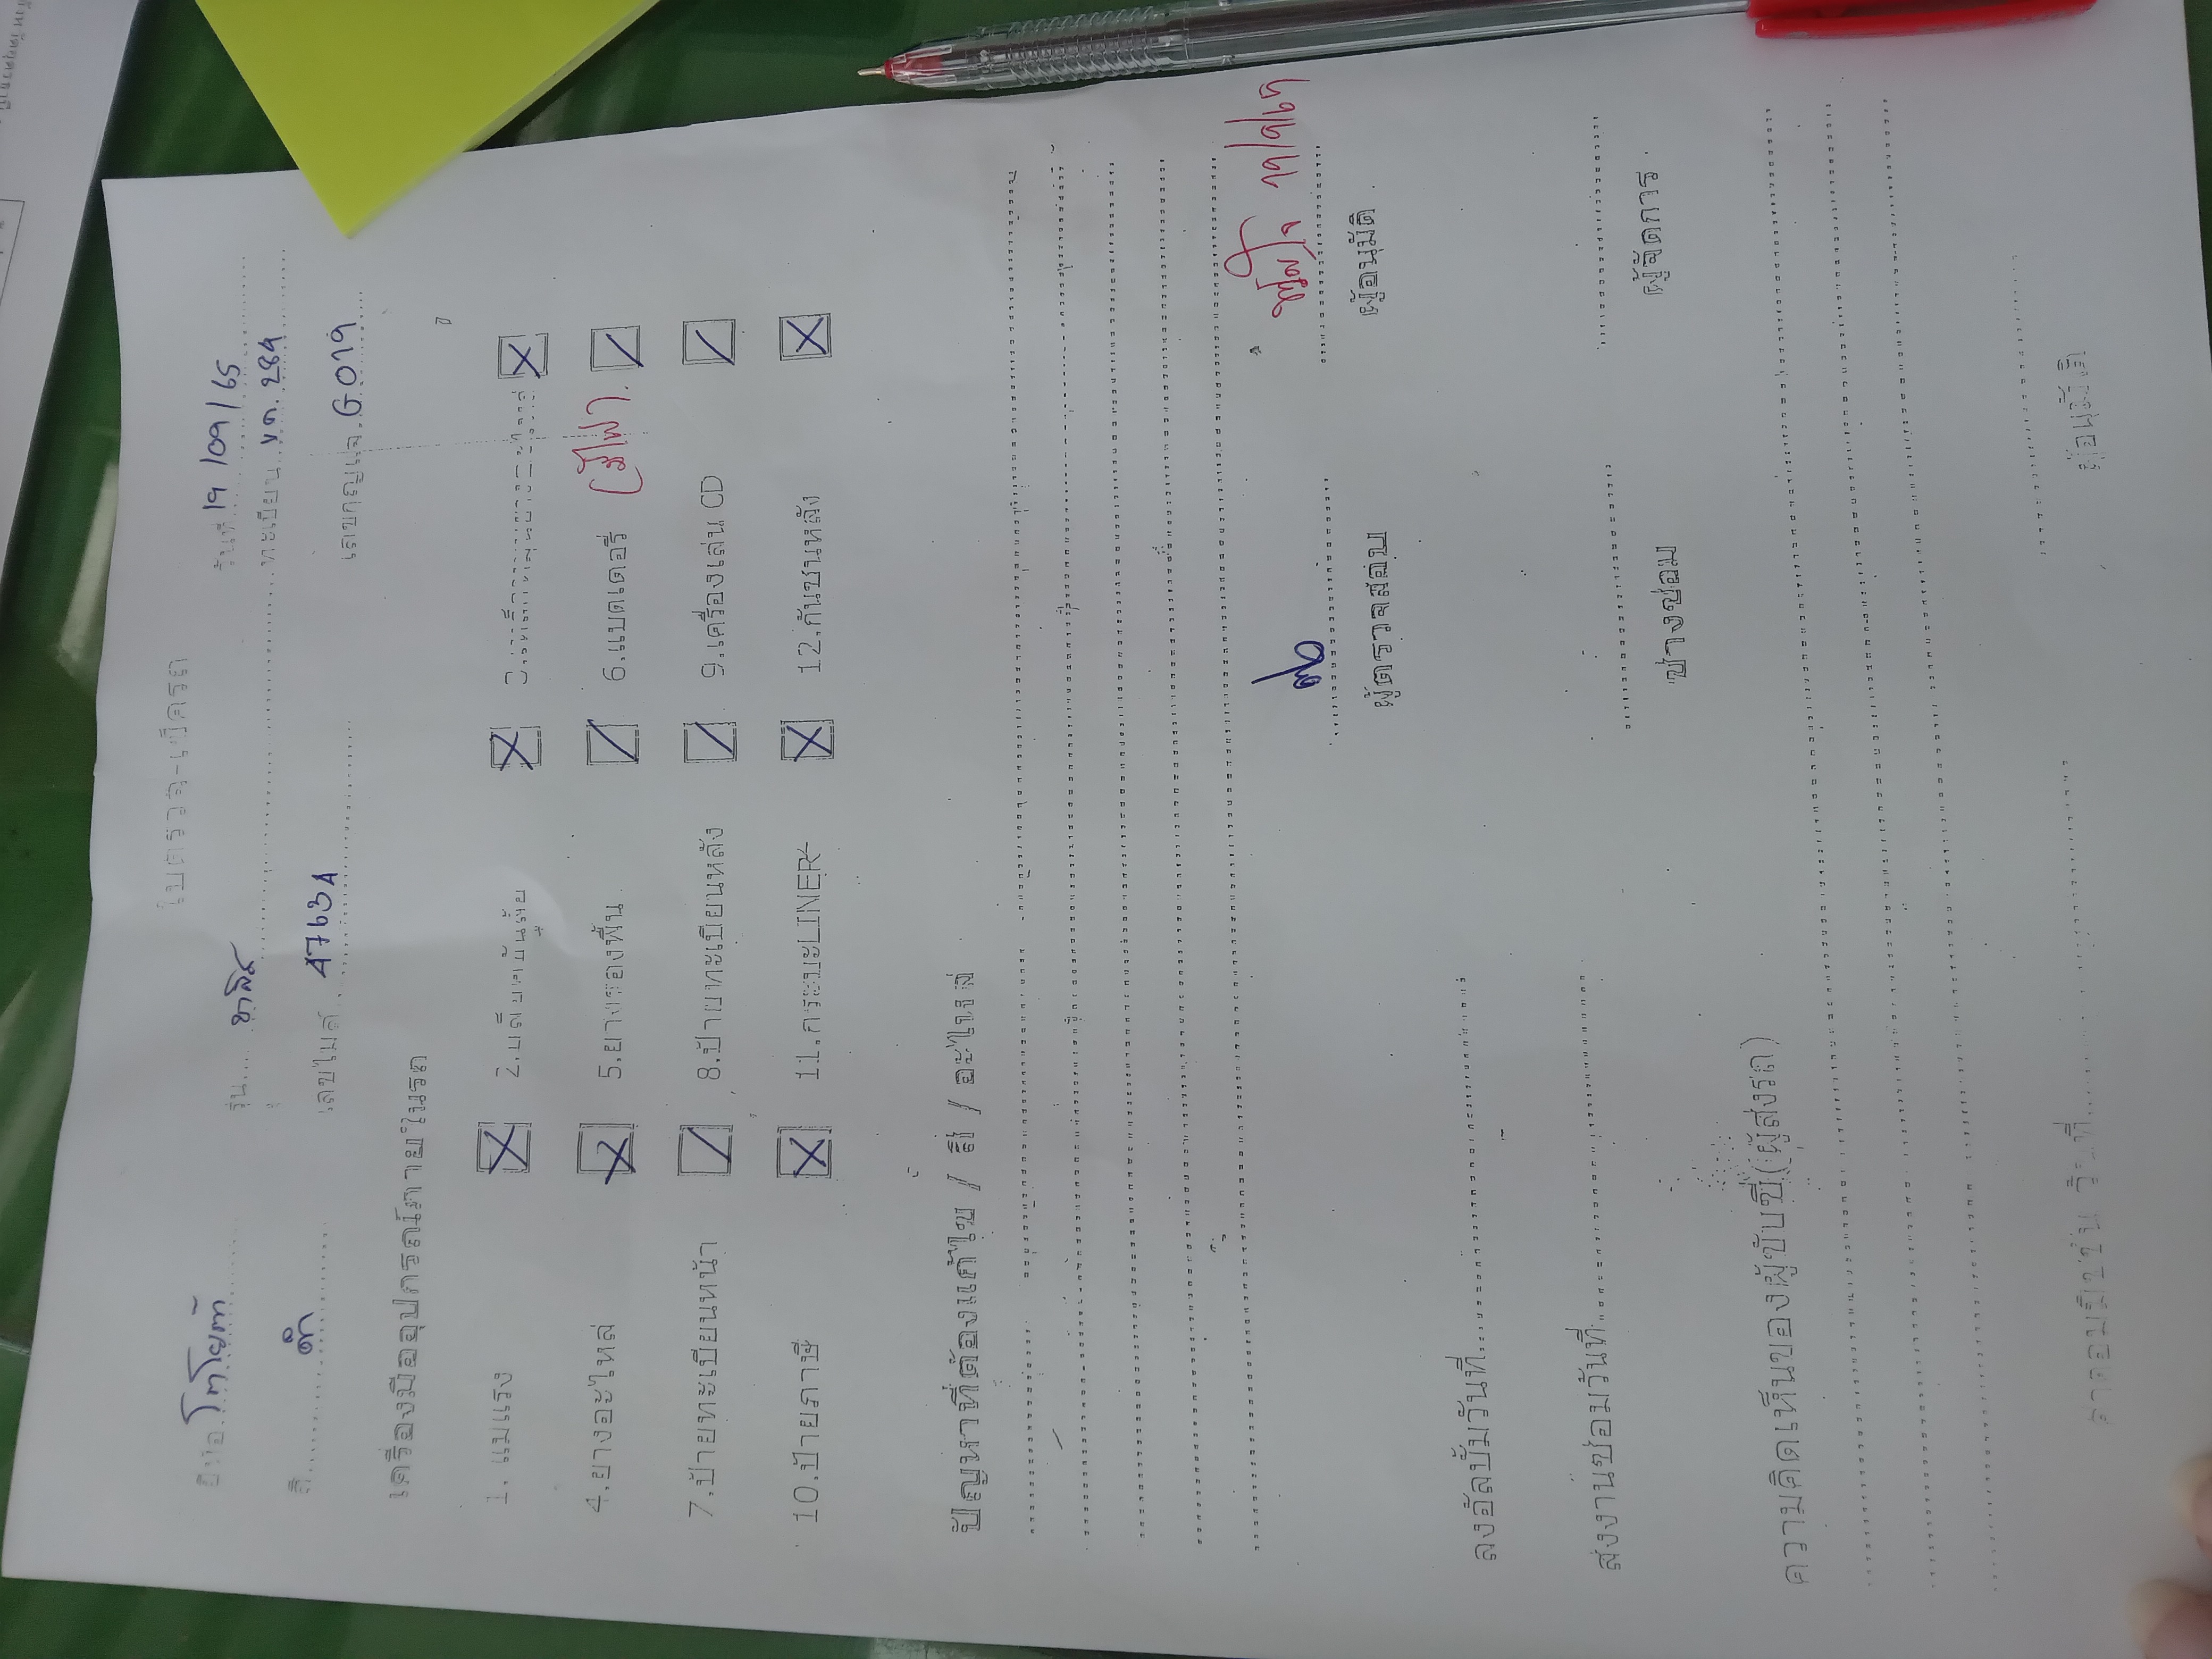 ใบตรวจ-เช็ครถ
ยี่ห้อ โตโยต้า รุ่น ยาลิส วันที่ 19/09/65
สี ดำ ทะเบียน ขก. 284
เลขไมล์ 4763A เลขกุญแจ G019
เครื่องมืออุปกรณ์ภายในรถ
1. แม่แรง 2.บล็อคขันน๊อต
4.ยางอะไหล่ 5.ยางรองพื้น 6.แบตเตอรี่ (มีไฟ)
7.ป้ายทะเบียนหน้า 8.ป้ายทะเบียนหลัง 9.เครื่องเล่น CD
10.ป้ายภาษี 11.กระบะLINER 12.กันชนหลัง
ปัญหาที่ต้องแก้ไข / สี / อะไหล่
ผู้ตรวจสอบ ผู้อนุมัติ
ลงอัลบั้มวันที่
ส่งงานซ่อมวันที่ ช่างซ่อม ผู้จัดการ
ความคิดเห็นของผู้ขับขี่(ผู้ส่งรถ)